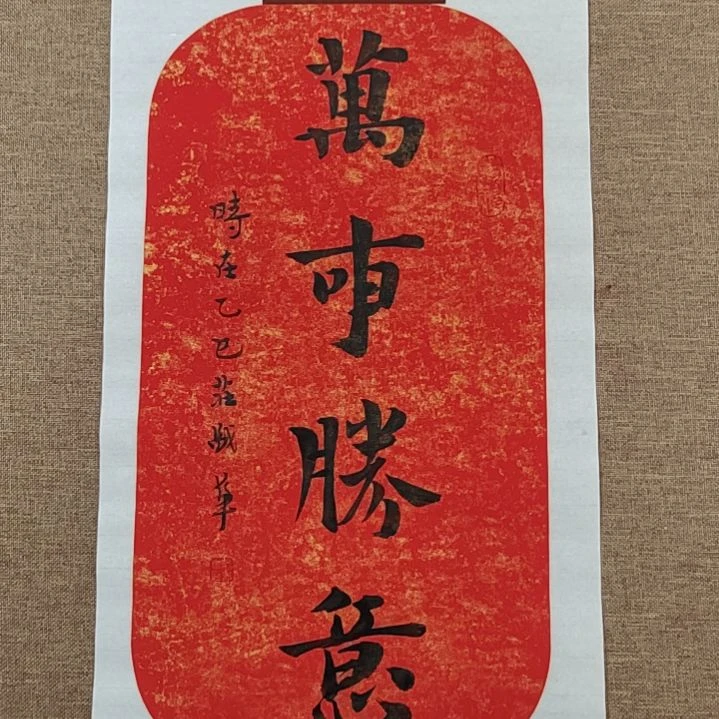 萬事勝意
時在乙巳莊誠華